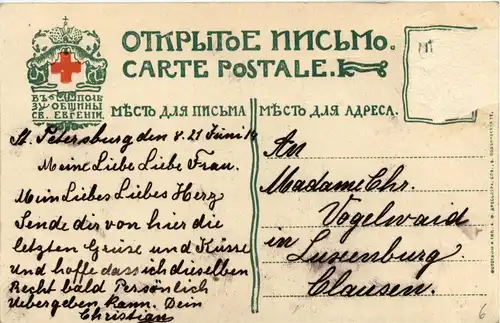 ОТКРЫТОЕ ПИСЬМО.
CARTE POSTALE.
ВЪ ПОЛЬ
ЗУ ОБЩИНЫ
СВ. ЕВГЕНІИ.
МѢСТО ДЛЯ ПИСЬМА
МѢСТО ДЛЯ АДРЕСА.
St. Petersburg den 8. 21 Juni 14
Meine Liebe Liebe Frau.
Mein Liebes Liebes Herz
Sende dir von hier die
letzten Grüse und Küsse
und hoffe dass ich dieselben
Recht bald Persönlich
Uebergeben kann. Dein
Christian
An
Madame Chr.
Vogelwaid
in Luxenburg.
Clausen.
6